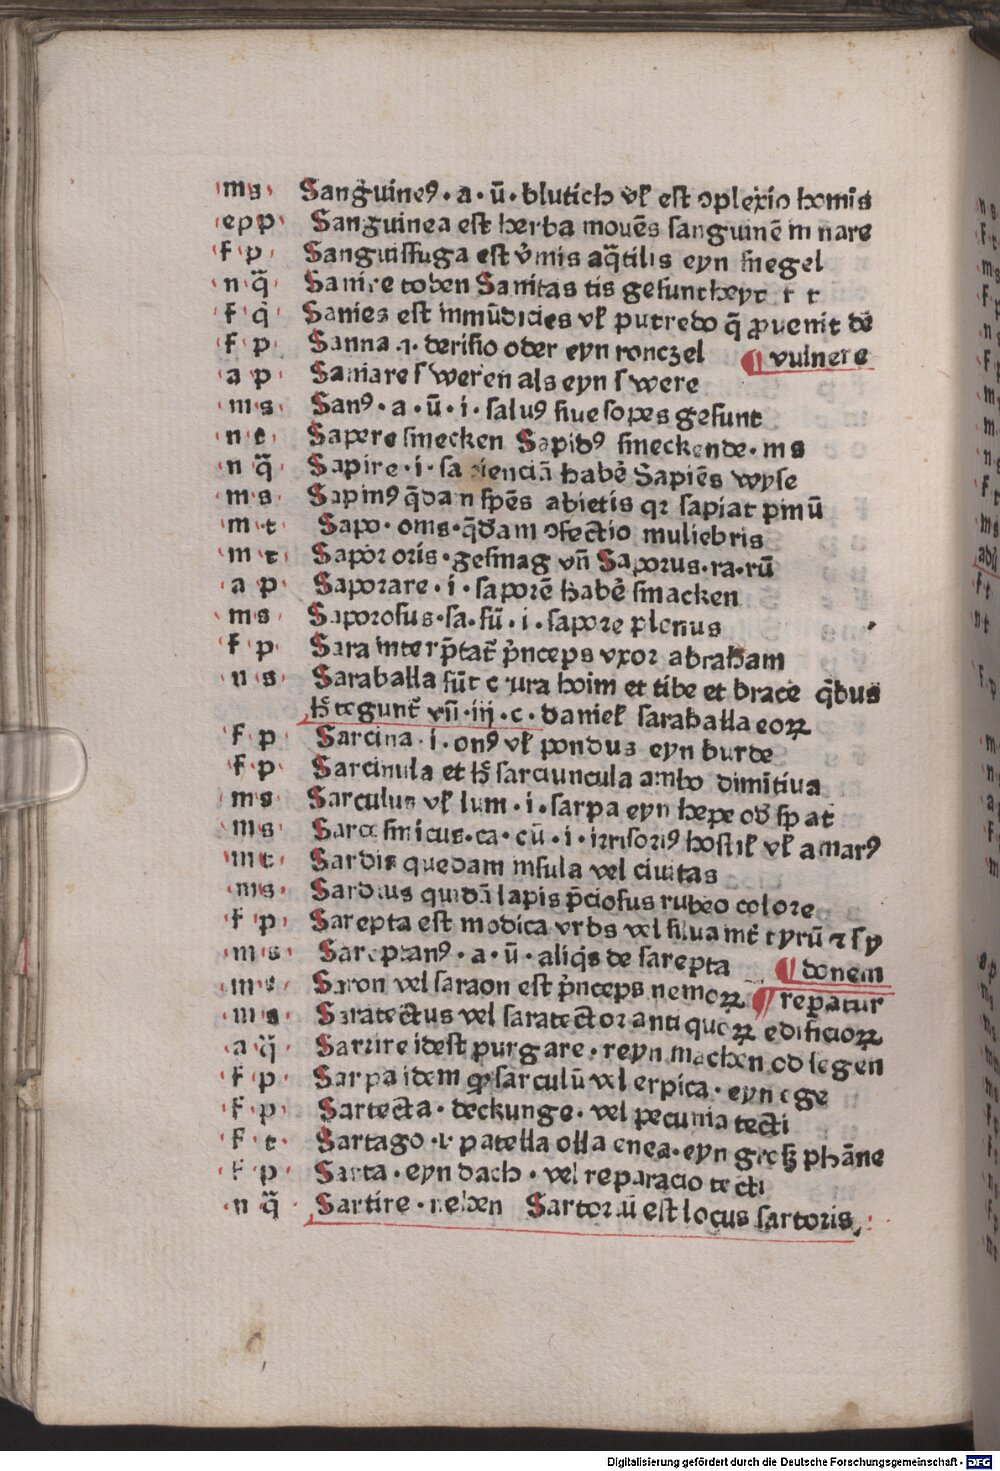 ·m s· Sanguineꝰ · a · ū · blutich vł est ↄplexio homis
·e p p· Sanguinea est herba mouēs sanguinē in nare
·f p· Sanguissuga est v̓mis aq̄tilis eyn snegel
·n q̄· Sanire toden Sanitas tis gesuntheyt r r
·f q̄· Sanies est inmūdicies vł putredo q̄ ꝓuenit de
·f p· Sanna .i. derisio oder eyn ronczel ¶ vulnere
·a p· Saniare sweren als eyn swere
·m s· Sanꝰ · a · ū · i · saluꝰ siue sopes gesunt
·n t· Sapere smecken Sapidꝰ smeckende · m s
·n q̄· Sapire · i · sapienciā habe᷑ Sapiēs wyse
·m s· Sapinꝰ q̄dam spēs abietis qꝛ sapiat pinū
·m t· Sapo · onis · q̄dam ↄfectio muliebris
·m t· Sapor oris · gesmag vn̄ Saporus · ra · rū
·a p· Saporare · i · saporē habe᷑ smacken
·m s· Saporosus · sa · sū · i · sapore plenus
·f p· Sara interp̄tat᷑ p̓nceps vxor abraham
·n s· Saraballa sūt crura hoim et tibe et brace q̄bus
hͦ tegunt᷑ vn̄ · iij · c · daniel᷑ saraballa eoꝝ
·f p· Sarcina · i · onꝰ vł pondus eyn burde
·f p· Sarcinula et hͦ sarciuncula ambo dimitiua
·m s· Sarculus vł lum · i · sarpa eyn hepe od᷑ spat
·m s· Sarcasmicus · ca · cū · i · irrisoriꝰ hostil᷑ vł amarꝰ
·m t· Sardis quedam insula vel ciuitas
·m s· Sardius quidā lapis p̄ciosus rubeo colore
·f p· Sarepta est modica vrbs vel silua int᷑ tyrū ⁊ sy
·m s· Sareptanꝰ · a · ū · aliq̓s de sarepta ¶ donem
·m s· Saron vel saraon est p̓nceps nemoꝝ ¶ reparatur
·m s· Saratectus vel saratector antiquoꝝ edificioꝝ
·a q̄· Sarrire idest purgare · reyn machen od legen
·f p· Sarpa idem qꝙ sarculū vel erpica · eyn ege
·f p· Sartecta · deckunge · vel pecunia tecti
·f t· Sartago · i · patella olla enea · eyn grosz phāne
·f p· Sarta · eyn dach · vel reparacio tecti
·n q̄· Sartire · neben Sartoriū est locus sartoris
Digitalisierung gefördert durch die Deutsche Forschungsgemeinschaft - DFG